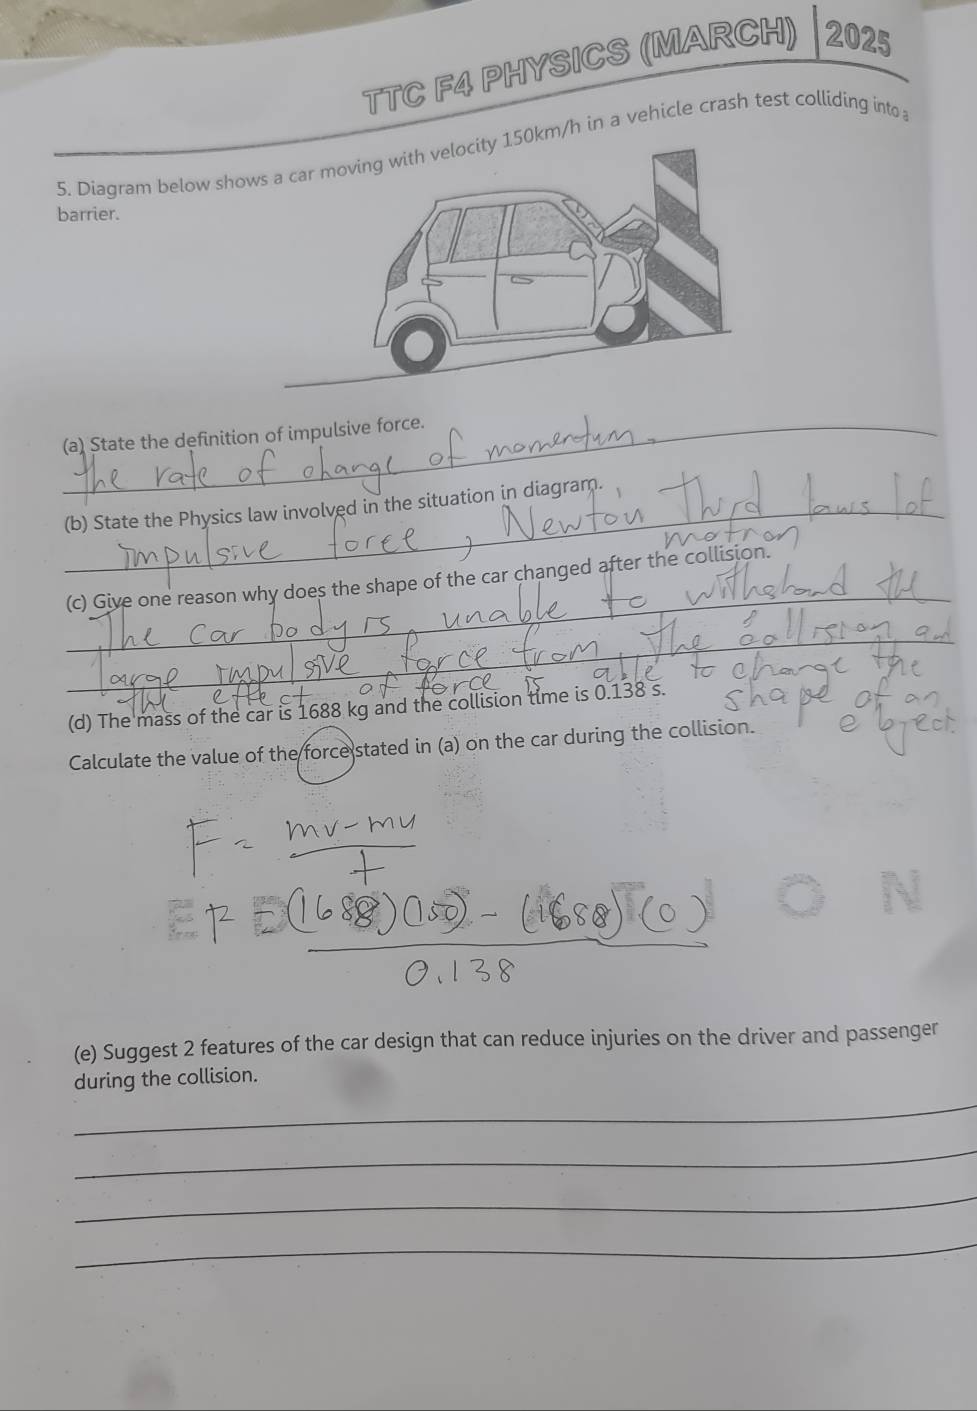 TTC F4 PHYSICS (MARCH) | 2025
5. Diagram below shows a car moving with velocity 150km/h in a vehicle crash test colliding into a
barrier.
(a) State the definition of impulsive force.
The rate of change of momentum.
(b) State the Physics law involved in the situation in diagram.
impulsive force, Newton Third laws of
motion
(c) Give one reason why does the shape of the car changed after the collision.
The car body is unable to withstand the
large impulsive force from the collision and
the effect of force is able to change the
shape of an
object.
(d) The mass of the car is 1688 kg and the collision time is 0.138 s.
Calculate the value of the force stated in (a) on the car during the collision.
F = mv - mu
t
F = (1688)(150) - (1688)(0)
0.138
(e) Suggest 2 features of the car design that can reduce injuries on the driver and passenger
during the collision.